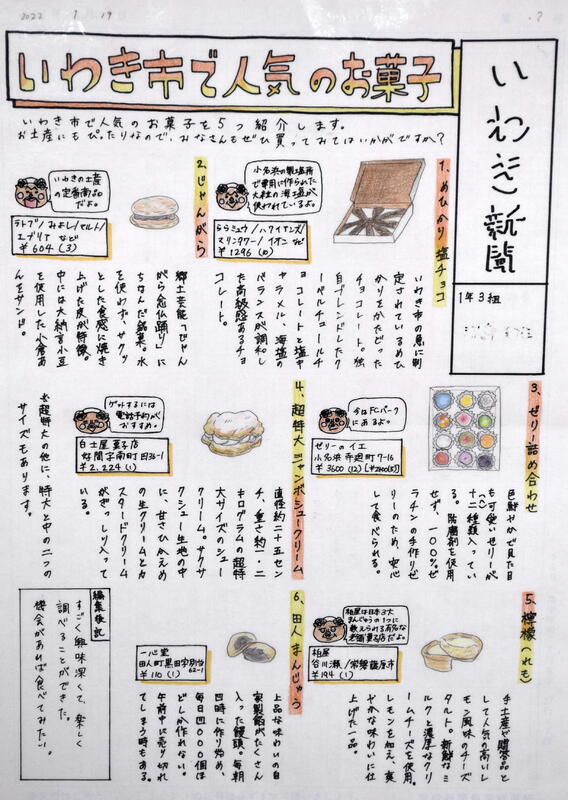 2022 1 19
いわき市で人気のお菓子
いわき市で人気のお菓子を5つ紹介します。
お土産にもぴったりなので、みなさんもぜひ買ってみてはいかがですか?
いわき新聞
1年3組
1、めひかり塩チョコ
小名浜の製塩所
で専用に作られた
大粒の海塩が
使われているよ。
ららミュウ/ハワイアンズ/
マリンタワー/イオンなど
¥1296(10)
いわき市の魚に制
定されているめひ
かりをかたどった
チョコレート。独
自ブレンドしたク
ーベルチュールチ
ョコレートと塩キ
ャラメル、海塩の
バランスが調和し
た高級感あるチョ
コレート。
2、じゃんがら
いわきの土産
の定番商品
だよ。
ラトブ/みよし/マルト/
エブリアなど
¥604(3)
郷土芸能「じゃん
がら念仏踊り」に
ちなんだ銘菓。水
を使わず、サクッ
とした食感に焼き
上げた皮が特徴。
中には大納言小豆
を使用した小倉あ
んをサンド。
3、ゼリー詰め合わせ
今はFCパーク
にあるよ。
ゼリーのイエ
小名浜寺廻町7-16
¥3600(12)
色鮮やかで見た目
も可愛いゼリーが
十二種類入ってい
る。防腐剤を使用
せず、100%ゼ
ラチンの手作りゼ
リーのため、安心
して食べられる。
4、超特大ジャンボシュークリーム
ゲットするには
電話予約が
おすすめ。
白土屋菓子店
好間字南町田36-1
¥2,224(1)
直径約二十五セン
チ、重さ約一・二
キログラムの超特
大サイズのシュー
クリーム。サクサ
クシュー生地の中
に、甘さひかえめ
の生クリームとカ
スタードクリーム
がぎっしり入って
いる。
※超特大の他に、特大と中の二つの
サイズもあります。
5、檸檬(れも)
柏屋は日本3大
まんじゅうの1つに
数えられる有名な
老舗菓子店だよ。
柏屋
谷川瀬/常磐鹿原市
¥194(1)
手土産や贈答品と
して人気の高いレ
モン風味のチーズ
タルト。新鮮なミ
ルクと濃厚なクリ
ームチーズを使用。
レモンを加え、爽
やかな味わいに仕
上げた一品。
6、田人まんじゅう
一心堂
田人町黒田字別当
62-1
¥110(1)
上品な味わいの自
家製餡がたくさん
入った饅頭。毎朝
四時に作り始め、
毎日四〇〇〇個ほ
どしか作れない。
午前中に売り切れ
てしまう時もある。
編集後記
すごく興味深くて、楽しく
調べることができた。
機会があれば食べてみたい。